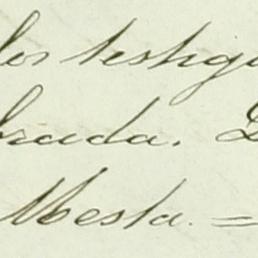 los testigo
brada. D
Mesta. =